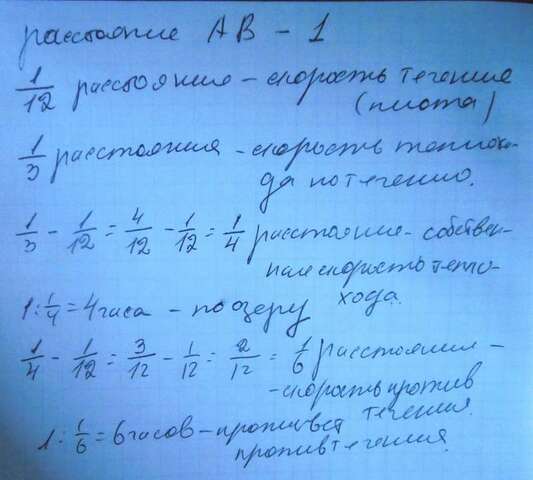 расстояние АВ - 1
1/12 расстояния - скорость течения
(плота)
1/3 расстояния - скорость теплохо-
да по течению.
1/3 - 1/12 = 4/12 - 1/12 = 1/4 расстояния - собствен-
ная скорость тепло-
хода.
1 : 1/4 = 4 часа - по озеру
1/4 - 1/12 = 3/12 - 1/12 = 2/12 = 1/6 расстояния -
- скорость против
течения.
1 : 1/6 = 6 часов -
против течения.